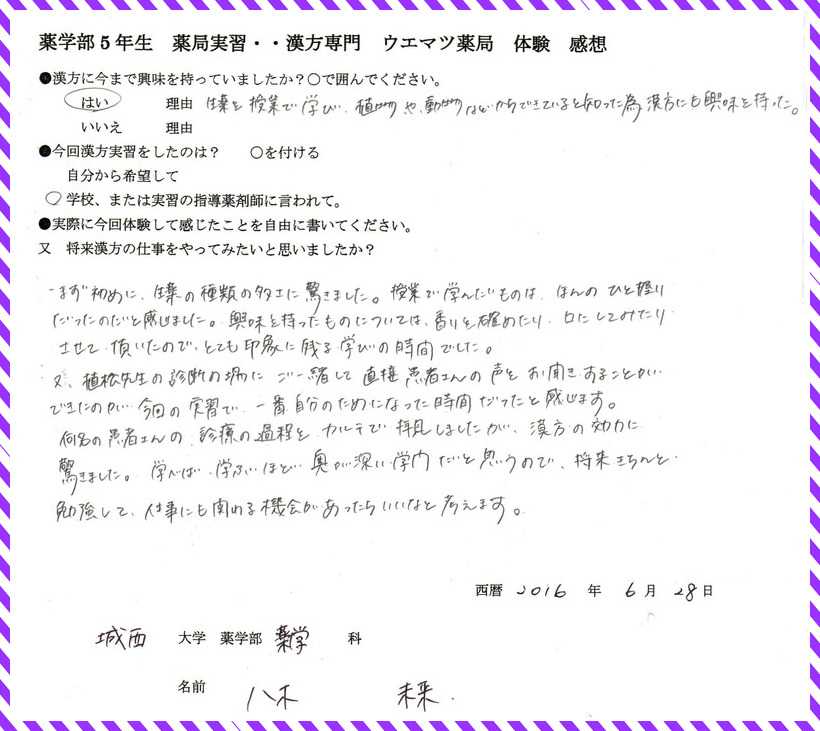 薬学部5年生 薬局実習・・漢方専門 ウエマツ薬局 体験 感想
●漢方に今まで興味を持っていましたか？○で囲んでください。
はい 理由 生薬を授業で学び、植物や、動物などからできていると知った為漢方にも興味を持った。
いいえ 理由
●今回漢方実習をしたのは？ ○を付ける
自分から希望して
○ 学校、または実習の指導薬剤師に言われて。
●実際に今回体験して感じたことを自由に書いてください。
又 将来漢方の仕事をやってみたいと思いましたか？
まず初めに、生薬の種類の多さに驚きました。授業で学んだものは、ほんのひと握り
だったのだと感じました。興味を持ったものについては、香りを確めたり、口にしてみたり
させて頂いたので、とても印象に残る学びの時間でした。
又、植松先生の診断の場にご一緒して直接患者さんの声をお聞きすることが
できたのが、今回の実習で、一番自分のためになった時間だったと感じます。
何名の患者さんの、診療の過程をカルテで拝見しましたが、漢方の効力に
驚きました。学べば、学ぶほど奥が深い学門だと思うので、将来きちんと
勉強して、仕事にも関わる機会があったらいいなと考えます。
西暦 2016 年 6 月 28 日
城西 大学 薬学部 薬学 科
名前 八木 未来.